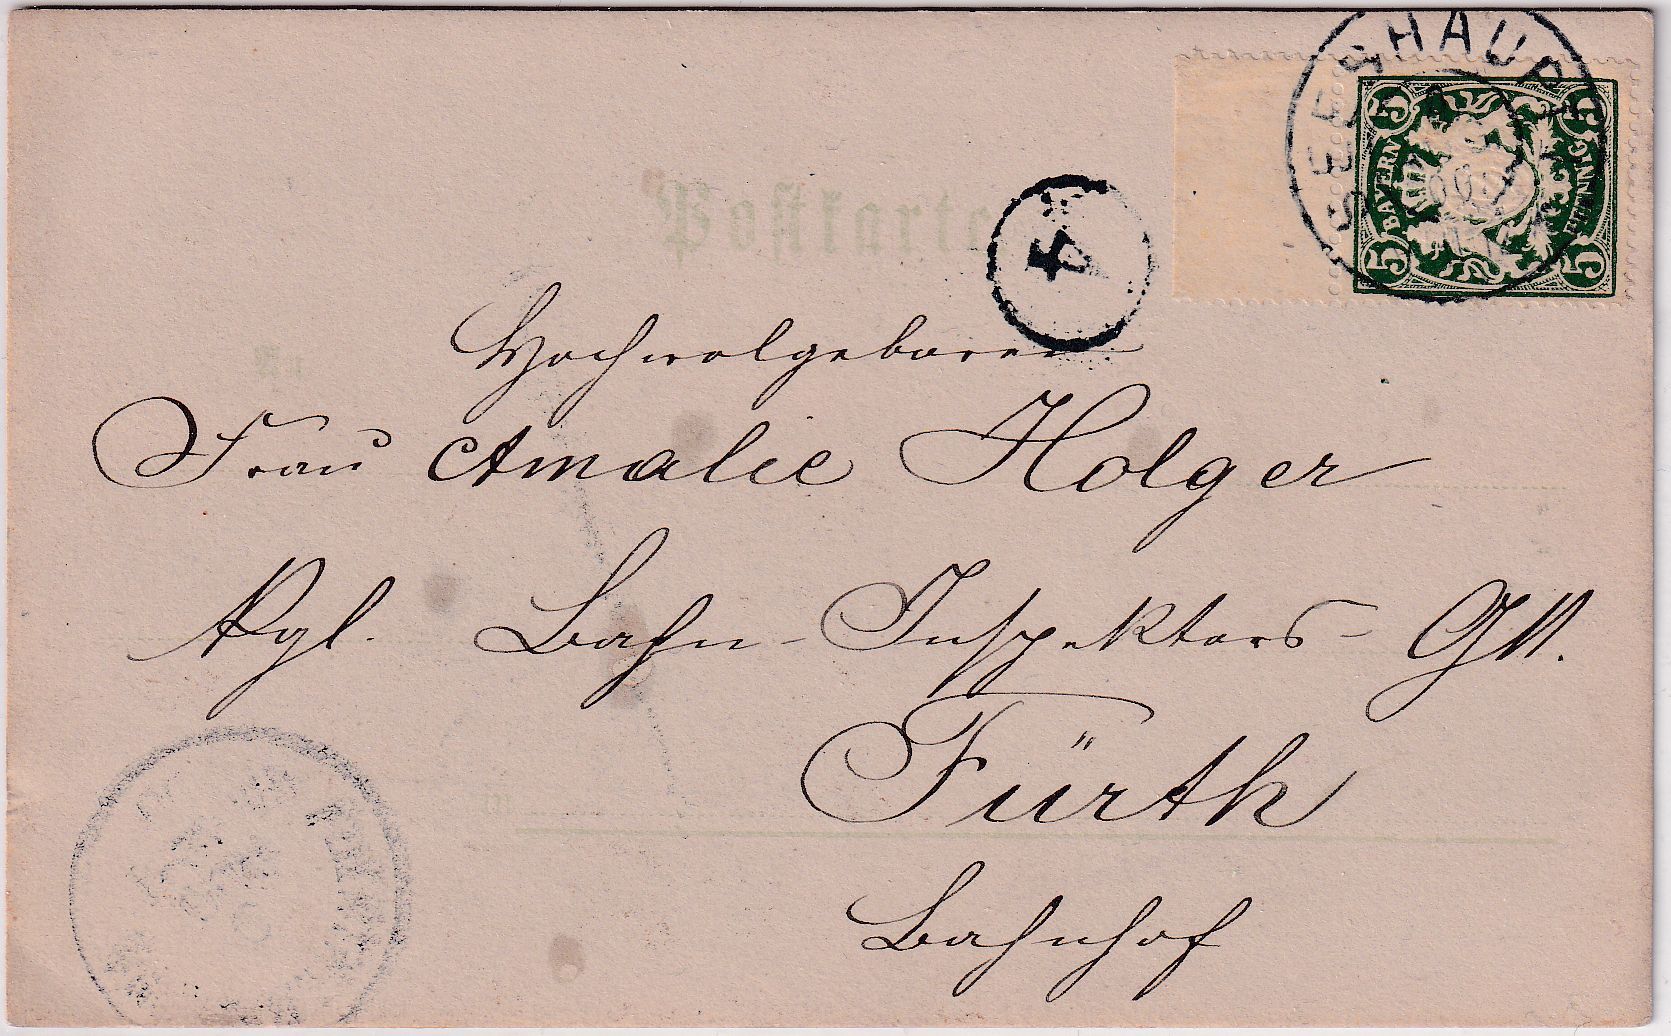 SEESHAUPT
5 5
BAYERN
PFENNIG
5 5
Postkarte
4
An
Hochwolgeboren
Frau Amalie Holger
Kgl. Bahn-Inspektors-Gtt.
in
Fürth
Bahnhof